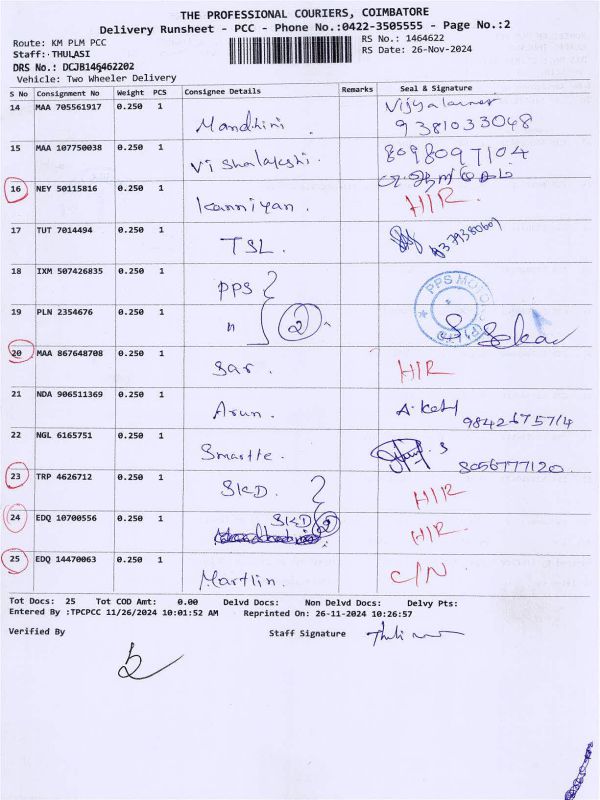 THE PROFESSIONAL COURIERS, COIMBATORE
Delivery Runsheet - PCC - Phone No.:0422-3505555 - Page No.:2
Route: KM PLM PCC
Staff: THULASI
DRS No.: DCJB146462202
Vehicle: Two Wheeler Delivery
RS No.: 1464622
RS Date: 26-Nov-2024
S No Consignment No Weight PCS Consignee Details Remarks Seal & Signature
14 MAA 705561917 0.250 1 Mandhini 9381033048
15 MAA 107750038 0.250 1 Vishalakshi. 8098097104
16 NEY 50115816 0.250 1 Kanniyan. HIR.
17 TUT 7014494 0.250 1 TSL.
18 IXM 507426835 0.250 1 PPS
19 PLN 2354676 0.250 1 " 2 PPS MOTORS
20 MAA 867648708 0.250 1 Sar. HIR
21 NDA 906511369 0.250 1 Arun. 9842675714
22 NGL 6165751 0.250 1 Smartte. 8056777120.
23 TRP 4626712 0.250 1 SKD. HIR
24 EDQ 10700556 0.250 1 SKD 2 HIR.
25 EDQ 14470063 0.250 1 Martlin. C/N
Tot Docs: 25 Tot COD Amt: 0.00 Delvd Docs: Non Delvd Docs: Delvy Pts:
Entered By :TPCPCC 11/26/2024 10:01:52 AM Reprinted On: 26-11-2024 10:26:57
Verified By Staff Signature